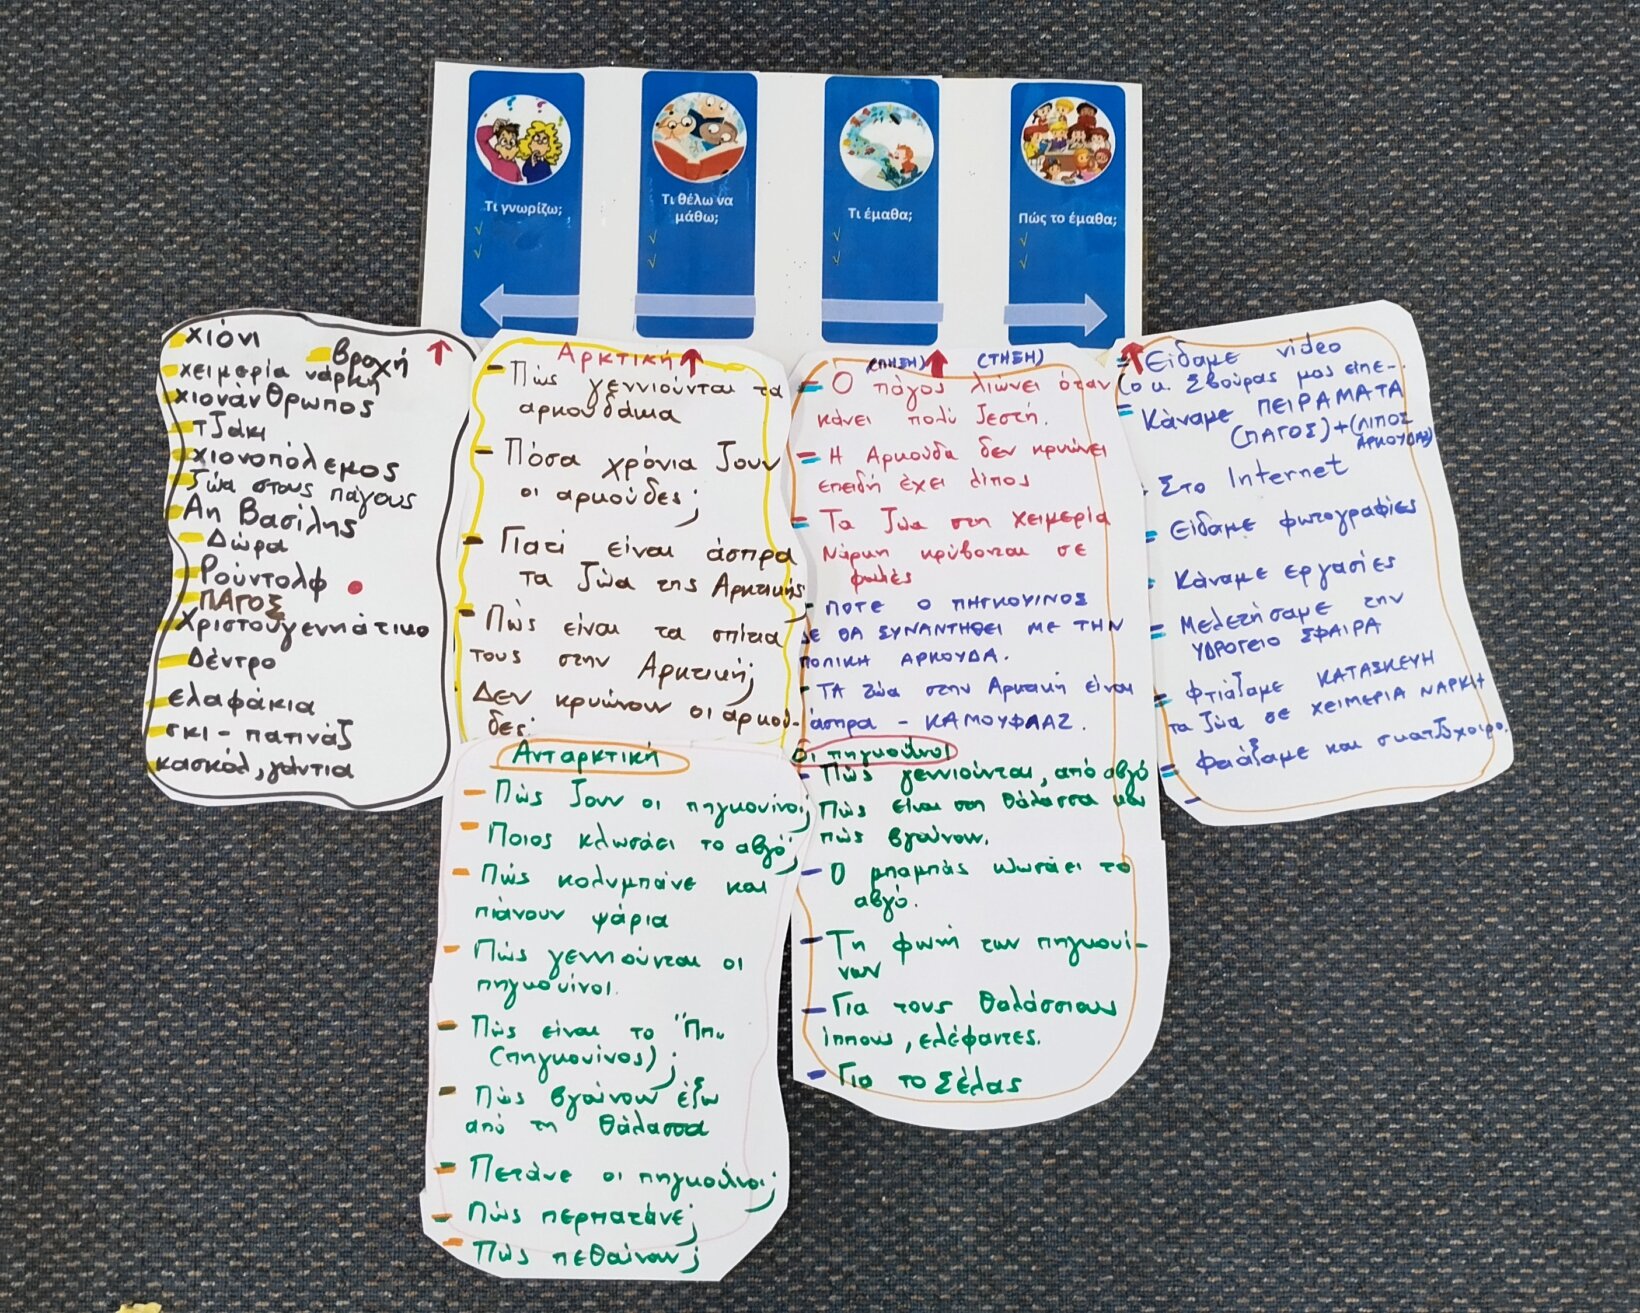 Τι γνωρίζω;
Τι θέλω να
μάθω;
Τι έμαθα;
Πώς το έμαθα;
χιόνι
βροχή
χειμερία νάρκη
χιονάνθρωπος
τζάκι
χιονοπόλεμος
ζώα στους πάγους
Αη Βασίλης
Δώρα
Ρούντολφ
ΠΑΓΟΣ
Χριστουγεννιάτικο
Δέντρο
ελαφάκια
σκι - πατινάζ
κασκόλ, γάντια
Αρκτική
- Πώς γεννιούνται τα
αρκουδάκια
- Πόσα χρόνια ζουν
οι αρκούδες;
- Γιατί είναι άσπρα
τα ζώα της Αρκτικής;
- Πώς είναι τα σπίτια
τους στην Αρκτική;
Δεν κρυώνουν οι αρκού-
δες;
Ανταρκτική
- Πώς ζουν οι πιγκουίνοι;
- Ποιος κλωσάει το αβγό;
- Πώς κολυμπάνε και
πιάνουν ψάρια
- Πώς γεννιούνται οι
πιγκουίνοι.
- Πώς είναι το
(πιγκουίνος);
- Πώς βγαίνουν έξω
από τη θάλασσα
- Πετάνε οι πιγκουίνοι;
- Πώς περπατάνε;
- Πώς πεθαίνουν;
(ΠΗΞΗ) (ΤΗΞΗ)
- Ο πάγος λιώνει όταν
κάνει πολύ ζέστη.
- Η Αρκούδα δεν κρυώνει
επειδή έχει λίπος
- Τα ζώα στη χειμερία
Νάρκη κρύβονται σε
φωλιές
- ΠΟΤΕ Ο ΠΗΓΚΟΥΙΝΟΣ
ΔΕ ΘΑ ΣΥΝΑΝΤΗΘΕΙ ΜΕ ΤΗΝ
ΠΟΛΙΚΗ ΑΡΚΟΥΔΑ.
- ΤΑ ζώα στην Αρκτική είναι
άσπρα - ΚΑΜΟΥΦΛΑΖ.
Οι πιγκουίνοι
- Πώς γεννιούνται, από αβγό
Πώς είναι στη θάλασσα και
πώς βγαίνουν.
- Ο μπαμπάς κλωσάει το
αβγό.
- Τη φωνή των πιγκουί-
νων
- Για τους θαλάσσιους
ίππους, ελέφαντες.
- Για το Σέλας
- Είδαμε video
(ο κ. Σβούρας μας είπε-.
- Κάναμε ΠΕΙΡΑΜΑΤΑ
(ΠΑΓΟΣ)+(ΛΙΠΟΣ
ΑΡΚΟΥΔΑΣ)
- Στο Internet
- Είδαμε φωτογραφίες
- Κάναμε εργασίες
- Μελετήσαμε την
ΥΔΡΟΓΕΙΟ ΣΦΑΙΡΑ
- Φτιάξαμε ΚΑΤΑΣΚΕΥΗ
τα ζώα σε ΧΕΙΜΕΡΙΑ ΝΑΡΚΗ
- Φτιάξαμε και σκατζόχοιρο.